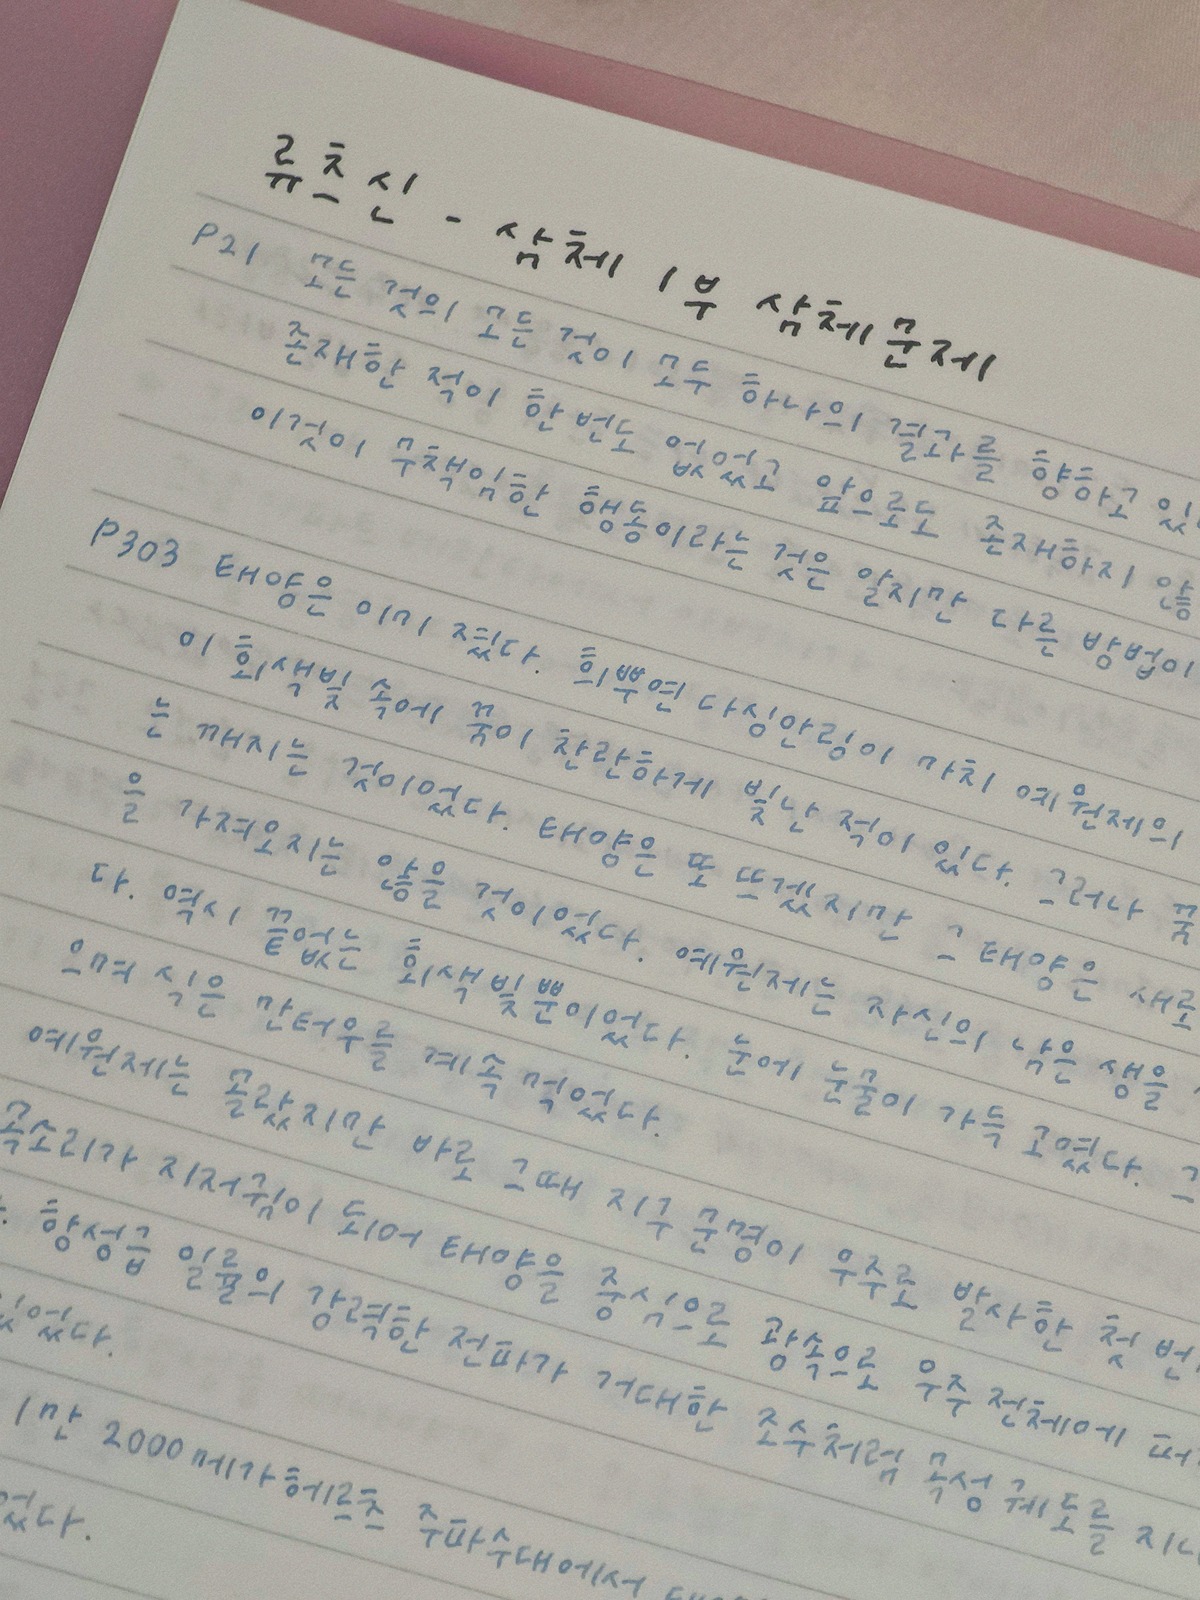 류츠신 - 삼체 1부 삼체문제
P21 모든 것의 모든 것이 모두 하나의 결과를 향하고 있
존재한 적이 한 번도 없었고 앞으로도 존재하지 않
이것이 무책임한 행동이라는 것은 알지만 다른 방법이
P303 태양은 이미 졌다. 희뿌연 다싱안링이 마치 예원제의
이 회색빛 속에 꿈이 찬란하게 빛난 적이 있다. 그러나 꿈
는 깨지는 것이었다. 태양은 또 뜨겠지만 그 태양은 새로
을 가져오지는 않을 것이었다. 예원제는 자신의 남은 생을
다. 역시 끝없는 회색빛뿐이었다. 눈에 눈물이 가득 고였다. 그
으며 식은 만터우를 계속 먹었다.
예원제는 몰랐지만 바로 그때 지구 문명이 우주로 발사한 첫 번
목소리가 지저귐이 되어 태양을 중심으로 광속으로 우주 전체에 퍼
. 항성급 일률의 강력한 전파가 거대한 조수처럼 목성 궤도를 지나
있었다.
1만 2000메가헤르츠 주파수대에서
었다.